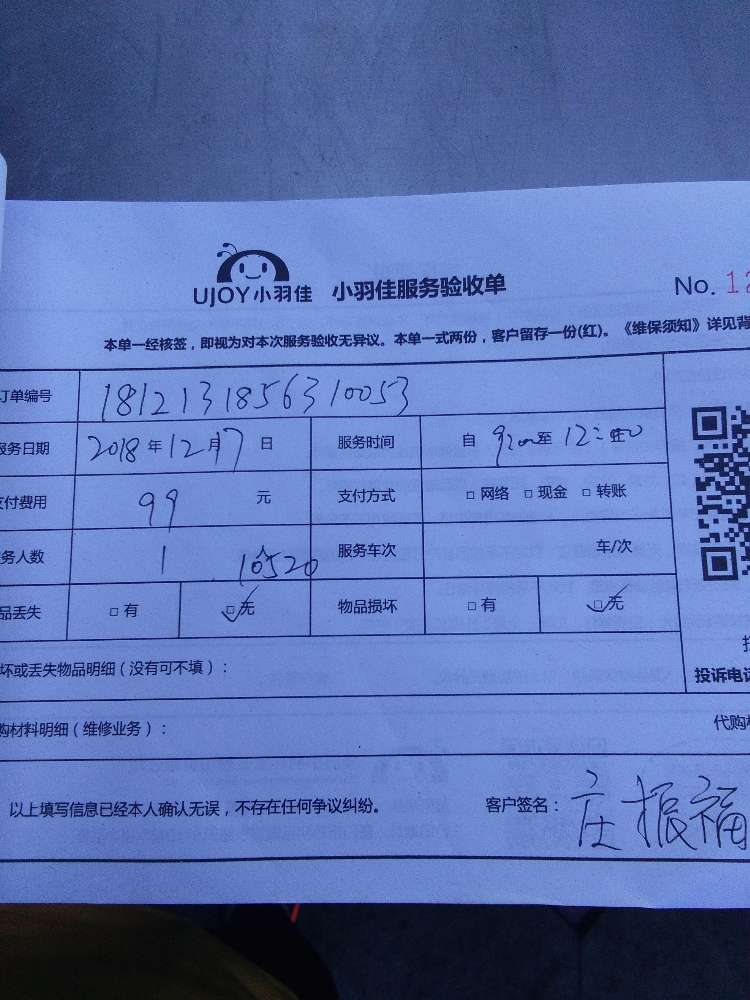 UJOY小羽佳 小羽佳服务验收单 No. 12
本单一经核签，即视为对本次服务验收无异议。本单一式两份，客户留存一份(红)。《维保须知》详见背
订单编号 1812131856310053
服务日期 2018年12月7日 服务时间 自 9:00至 12:00
支付费用 99 元 支付方式 □ 网络 □ 现金 □ 转账
务人数 1 10520 服务车次 车/次
品丢失 □ 有 □无 物品损坏 □ 有 □无
坏或丢失物品明细（没有可不填）：
投诉电话
购材料明细（维修业务）： 代购
以上填写信息已经本人确认无误，不存在任何争议纠纷。 客户签名：庄振福